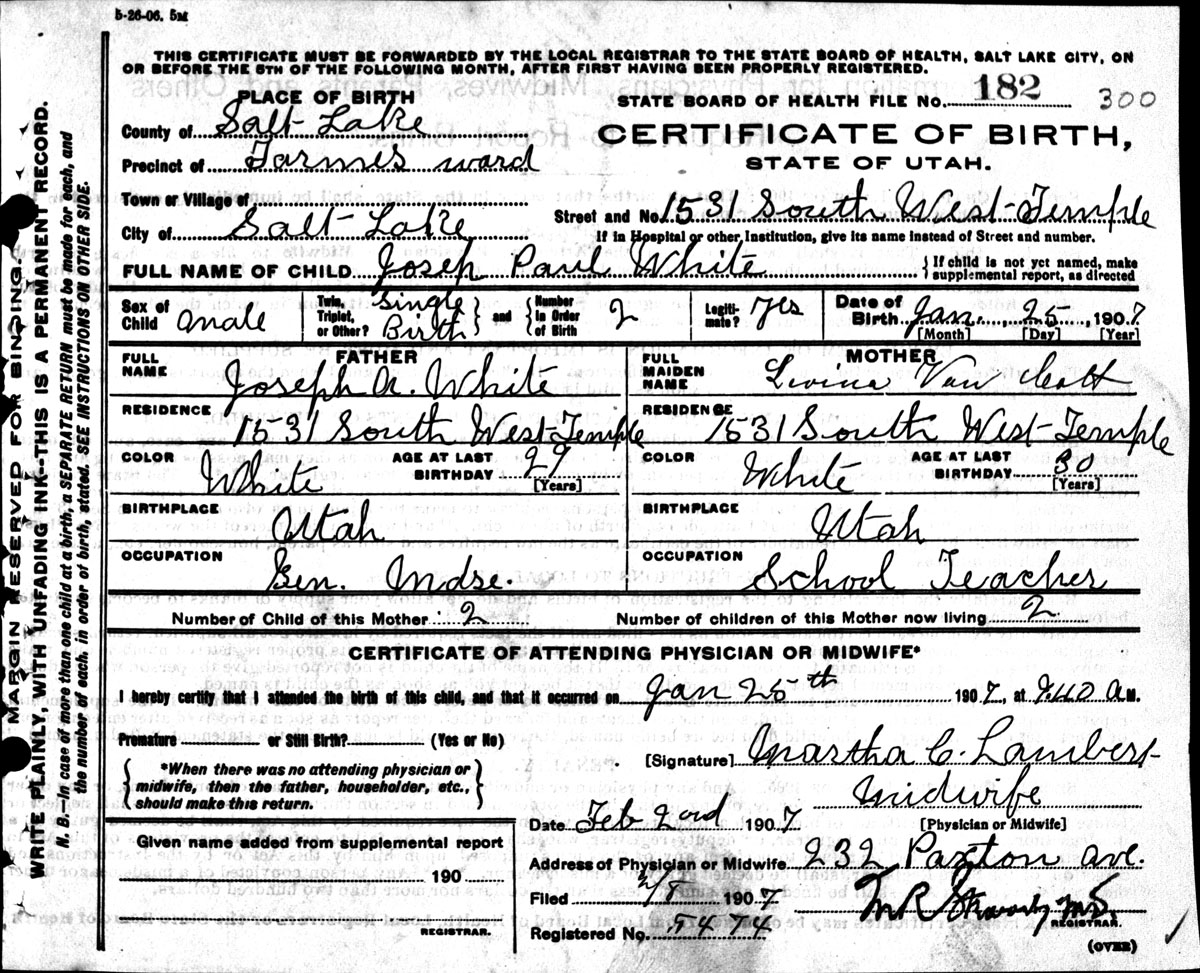 5-26-06. 5M
THIS CERTIFICATE MUST BE FORWARDED BY THE LOCAL REGISTRAR TO THE STATE BOARD OF HEALTH, SALT LAKE CITY, ON
OR BEFORE THE 5TH OF THE FOLLOWING MONTH, AFTER FIRST HAVING BEEN PROPERLY REGISTERED.
MARGIN RESERVED FOR BINDING.
WRITE PLAINLY, WITH UNFADING INK--THIS IS A PERMANENT RECORD.
N. B.--In case of more than one child at a birth, a SEPARATE RETURN must be made for each, and
the number of each, in order of birth, stated. SEE INSTRUCTIONS ON OTHER SIDE.
PLACE OF BIRTH
STATE BOARD OF HEALTH FILE NO. 182 300
County of Salt Lake
CERTIFICATE OF BIRTH,
Precinct of Farmes ward
STATE OF UTAH.
Town or Village of
Street and No. 1531 South West Temple
City of Salt Lake
If in Hospital or other Institution, give its name instead of Street and number.
FULL NAME OF CHILD Joseph Paul White
If child is not yet named, make
supplemental report, as directed
Sex of Child male
Twin, Triplet, or Other? Single Birth
and Number in Order of Birth 2
Legiti- mate? Yes
Date of Birth Jan. 25, 1907
[Month] [Day] [Year]
FATHER
FULL NAME Joseph A. White
MOTHER
FULL MAIDEN NAME Van Cott
RESIDENCE 1531 South West Temple
RESIDENCE 1531 South West Temple
COLOR White AGE AT LAST BIRTHDAY 29 [Years]
COLOR White AGE AT LAST BIRTHDAY 30 [Years]
BIRTHPLACE Utah
BIRTHPLACE Utah
OCCUPATION Gen. Mdse.
OCCUPATION School Teacher
Number of Child of this Mother 2
Number of children of this Mother now living 2
CERTIFICATE OF ATTENDING PHYSICIAN OR MIDWIFE*
I hereby certify that I attended the birth of this child, and that it occurred on Jan 25th 1907, at :40 A M.
Premature or Still Birth? (Yes or No)
[Signature] Martha C. Lambert
*When there was no attending physician or
midwife, then the father, householder, etc.,
should make this return.
Midwife
[Physician or Midwife]
Date Feb 2nd 1907
Given name added from supplemental report
190
REGISTRAR.
Address of Physician or Midwife 232 Paxton ave.
Filed 2/8 1907
REGISTRAR.
Registered No. 5474
(OVER)